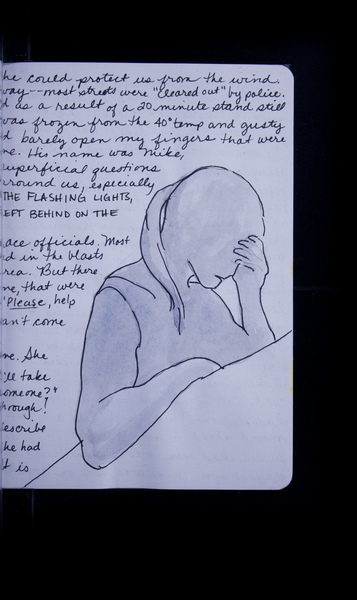 he could protect us from the wind.
way--most streets were "cleared out" by police.
d as a result of a 20 minute stand still
was frozen from the 40° temp and gusty
d barely open my fingers that were
me. His name was Mike,
superficial questions
round us, especially
THE FLASHING LIGHTS,
EFT BEHIND ON THE
ace officials. Most
rd in the blasts
rea. But there
me, that were
"Please, help
an't come
me. She
'll take
omeone?"
hrough!
escribe
he had
t is